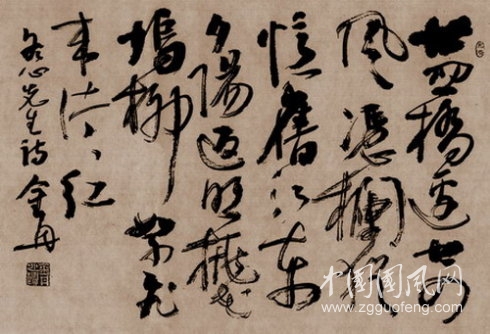 廿四橋邊廿四
風憑欄猶
憶舊江東
夕陽返照桃花
塢柳絮飛
来片々红
冬心先生诗 金丹
中国国风网
www.zgguofeng.com